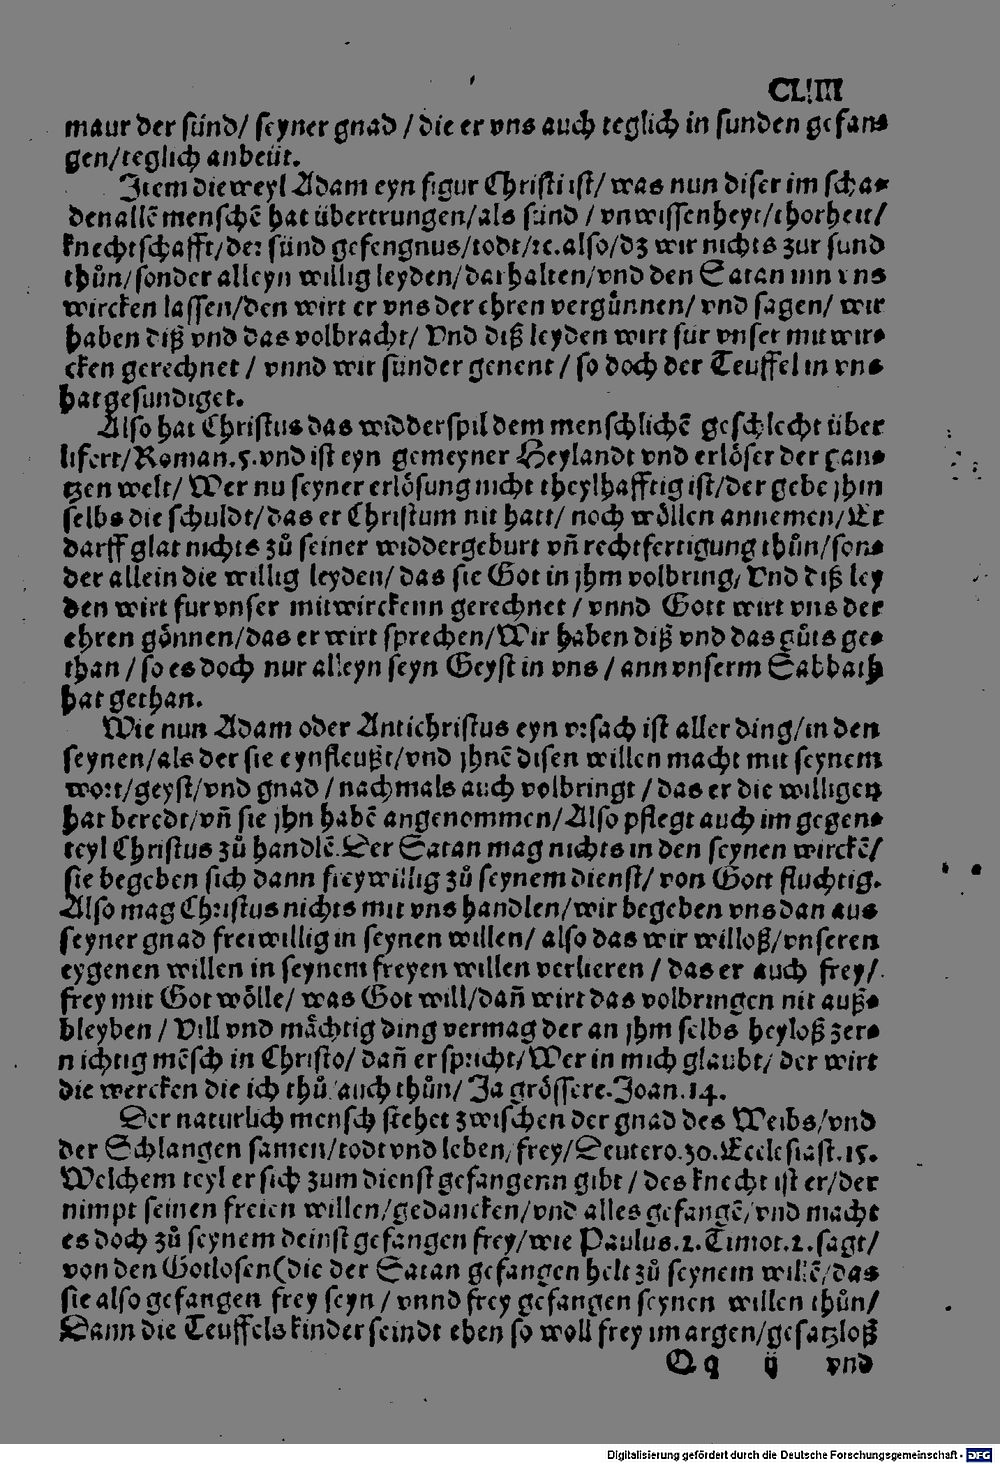 CLIIII
maur der sünd/ seyner gnad / die er vns auch teglich in sunden gefan⸗
gen/teglich anbeüt.
Item dieweyl Adam eyn figur Christi ist/ was nun diser im scha⸗
den allẽ menschẽ hat übertrungen/als sünd / vnwissenheyt/thorheit/
knechtschafft/der sünd gefengnus/todt/ꝛc.also/dz wir nichts zur sund
thůn/sonder alleyn willig leyden/darhalten/vnd den Satan inn vns
wircken lassen/den wirt er vns der ehren vergünnen/ vnd sagen/ wir
haben diß vnd das volbracht/ Vnd diß leyden wirt für vnser mitwir⸗
cken gerechnet / vnnd wir sünder genent / so doch der Teuffel in vns
hat gesundiget.
Also hat Christus das widderspil dem menschlichẽ geschlecht über
lifert/Roman.5.vnd ist eyn gemeyner Heylandt vnd erlöser der gan⸗
tzen welt/ Wer nu seyner erlösung nicht theylhafftig ist/der gebe jhm
selbs die schuldt/das er Christum nit hatt/ noch wöllen annemen/Er
darff glat nichts zů seiner widdergeburt vñ rechtfertigung thůn/son⸗
der allein die willig leyden/ das sie Got in jhm volbring/ Vnd diß ley
den wirt fur vnser mitwirckenn gerechnet / vnnd Gott wirt vns der
ehren gönnen/das er wirt sprechen/Wir haben diß vnd das gůts ge⸗
than / so es doch nur alleyn seyn Geyst in vns / ann vnserm Sabbath
hat gethan.
Wie nun Adam oder Antichristus eyn vrsach ist aller ding/in den
seynen/als der sie eynfleußt/vnd jhnẽ disen willen macht mit seynem
wort/geyst/vnd gnad / nachmals auch volbringt / das er die willigen
hat beredt/vñ sie jhn habẽ angenommen/Also pflegt auch im gegen⸗
teyl Christus zů handlẽ.Der Satan mag nichts in den seynen wirckẽ/
sie begeben sich dann freywillig zů seynem dienst/ von Gott fluchtig.
Also mag Christus nichts mit vns handlen/wir begeben vns dan aus
seyner gnad freiwillig in seynen willen/ also das wir willoß/vnseren
eygenen willen in seynem freyen willen verlieren / das er auch frey/
frey mit Got wölle/ was Got will/dañ wirt das volbringen nit auß⸗
bleyben / Vill vnd mächtig ding vermag der an jhm selbs heyloß zer⸗
nichtig mẽsch in Christo/ dañ er spricht/Wer in mich glaubt/ der wirt
die wercken die ich thů auch thůn/ Ja grössere.Joan.14.
Der naturlich mensch stehet zwischen der gnad des Weibs/vnd
der Schlangen samen/todt vnd leben/frey/Deutero.30.Ecclesiast.15.
Welchem teyl er sich zum dienst gefangenn gibt / des knecht ist er/der
nimpt seinen freien willen/gedancken/vnd alles gefangẽ/vnd macht
es doch zů seynem deinst gefangen frey/wie Paulus.2.Timot.2.sagt/
von den Gotlosen(die der Satan gefangen helt zů seynem willẽ/das
sie also gefangen frey seyn / vnnd frey gefangen seynen willen thůn/
Dann die Teuffels kinder seindt eben so woll frey im argen/gesatzloß
Q q ij vnd
Digitalisierung gefördert durch die Deutsche Forschungsgemeinschaft - DFG